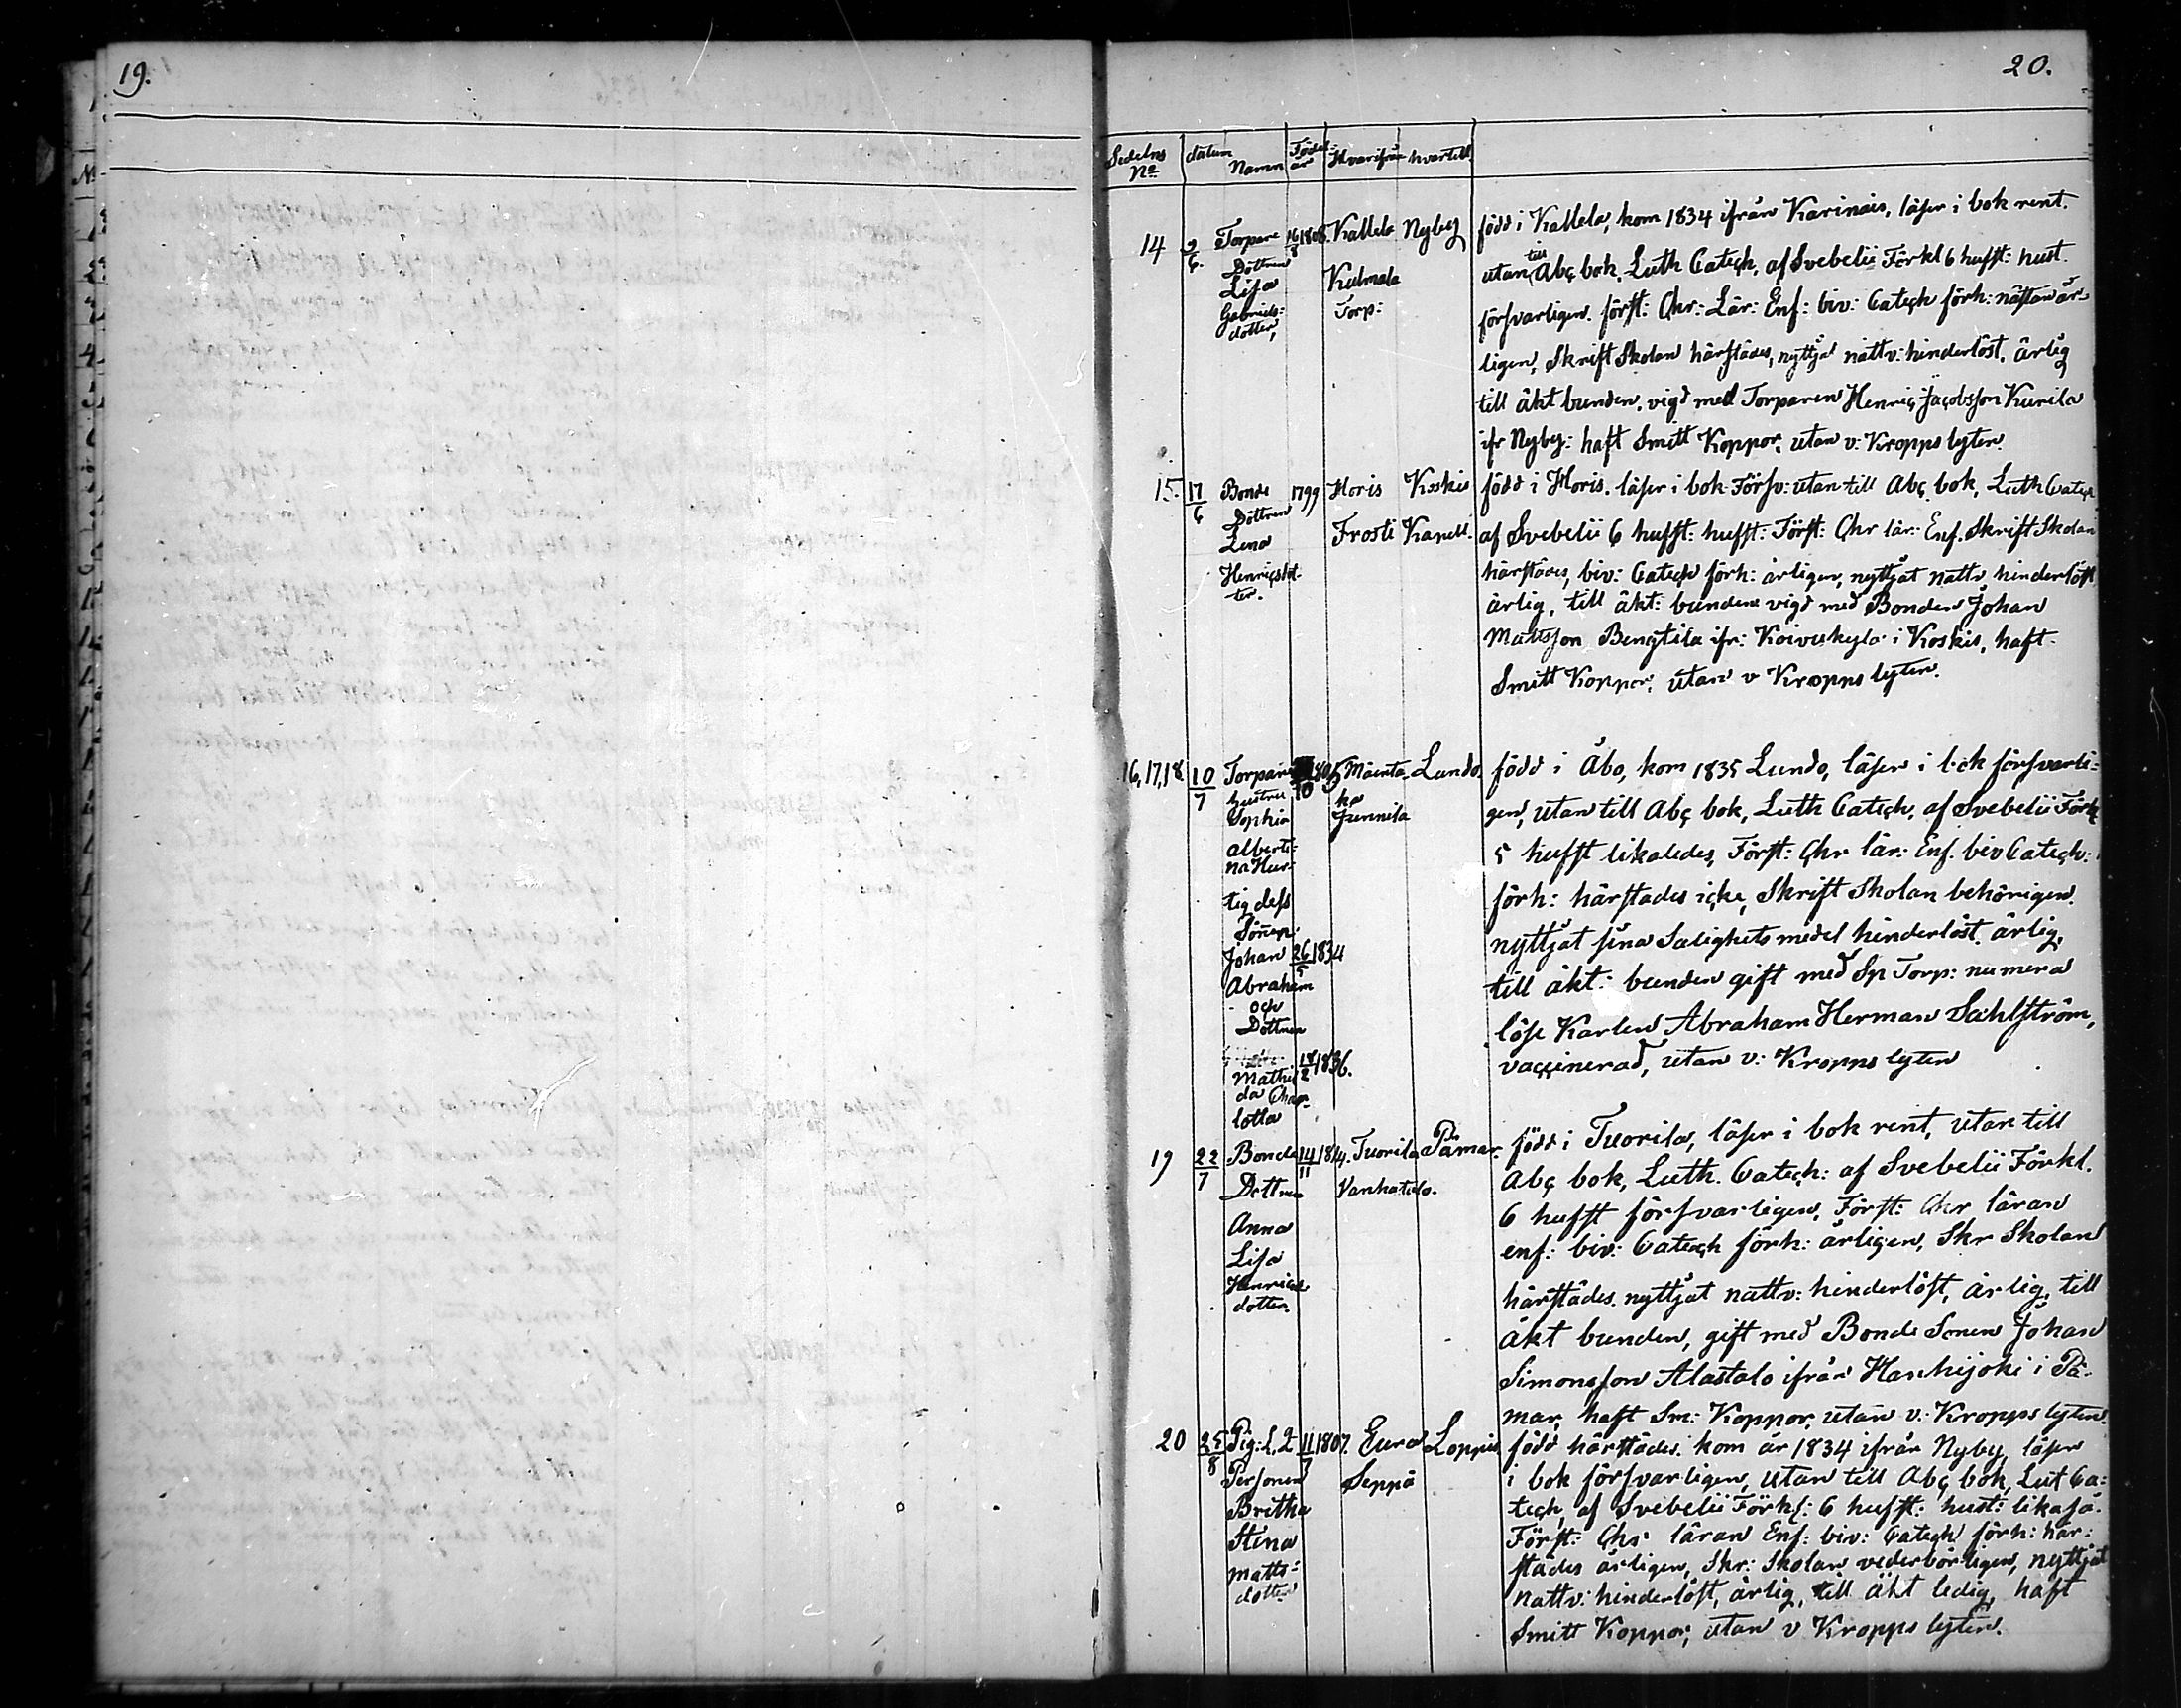 19.
20.
Sedelns No datum Namn Födel: år Hvarifrån hvartill
14 2/6. Torpare Döttren Lisa Gabriels: dotter, 16/8 1808. Kallela Kulmala Torp: Nyby
född i Kallela, kom 1834 ifrån Karinais, läser i bok rent.
utan till Abc bok, Luth Catech, af Svebelii Förkl 6 hufst: hust.
försvarligen. först: Chr: Lär: Enf: biv: Catech förh: nästan år-
ligen, Skrift Skolan härstädes, nyttjat nattv: hinderlöst, ärlig
till äkt bunden. vigd med Torparen Henric Jacobsson Kurila
ifr Nyby: haft Smitt Koppor, utan v: Kropps lyten.
15. 17/6 Bonde Döttren Lena Henricsdot- ter. 1799 Horis Frosti Koskis Kapell.
född i Horis. läser i bok Försv: utan till Abc bok, Luth Catech
af Svebelii 6 hufst: hufst: Först: Chr lär: Enf. Skrift Skolan
härstädes, biv: Catech förh: årligen, nyttjat nattv hinderlöst
ärlig, till äkt: bunden vigd med Bonden Johan
Mattsson Bengtila ifr: Koivukylä i Koskis, haft
Smitt Koppor, utan v Kropps lyten.
16,17,18 10/7 Torpare hustru Sophia Alberti- na Hur- tig dess Sonen Johan 26/5 1834 Abraham och Döttren Mathil da Char- lotta 18/2 1836. 1805 Mäenta- ka Junnila Lundo.
född i Åbo, kom 1835 Lundo, läser i bok försvarli-
gen, utan till Abc bok, Luth Catech, af Svebelii Förk
5 hufst likaledes, Först: Chr lär: Enf. biv Catech:
förh: härstades icke, Skrift Skolan behörigen.
nyttjat sina Salighets medel hinderlöst. ärlig,
till äkt: bunden gift med Sp Torp: numera
löse Karlen Abraham Herman Sahlström,
vaccinerad, utan v: Kropps lyten
19 22/7 Bonde Dottren Anna Lisa Henrics dotter. 14/11 1814. Tuorila Vanhatalo. Pämar.
född i Tuorila, läser i bok rent, utan till
Abc bok, Luth. Catech: af Svebelii Förkl.
6 hufst försvarligen, Först: Chr läran
enf: biv: Catech förh: årligen, Skr Skolan
härstädes. nyttjat nattv: hinderlöst, ärlig, till
äkt bunden, gift med Bonde Sonen Johan
Simonsson Alastalo ifrån Hanhijoki i Pä-
mar, haft Sm: Koppor, utan v: Kropps lyten.
20 25/8 Pig: L. Q Personen Britha Stina Matts- dotter 11/7 1807. Eura Seppä Loppis
född härstädes. kom år 1834 ifrån Nyby, läser
i bok försvarligen, utan till Abc bok, Lut Ca:
tech, af Svebelii Förkl: 6 hufst: hust: likaså.
Först: Chr läran Enf: biv: Catech förh: här:
städes årligen, Skr: Skolan vederbörligen, nyttjat
nattv: hinderlöst, ärlig, till äkt ledig, haft
Smitt Koppor, utan v Kropps lyten.